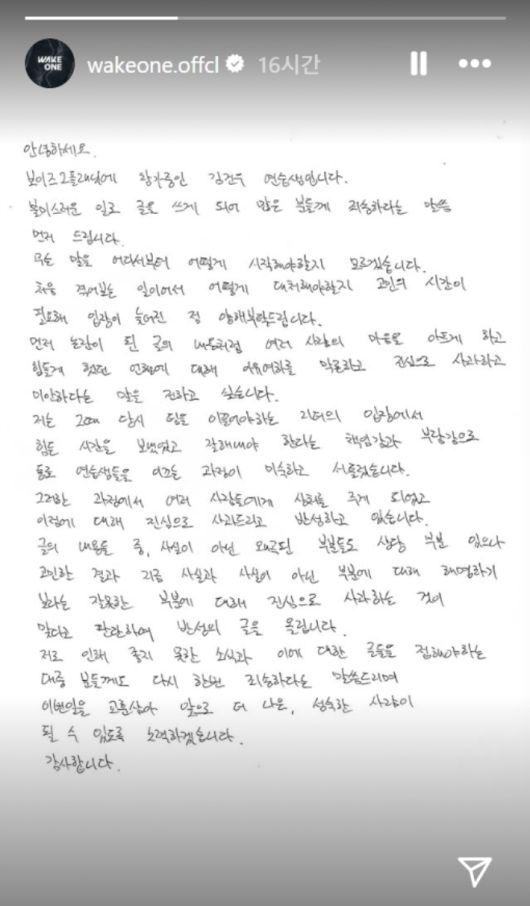 WAKE ONE
wakeone.offcl 16시간
안녕하세요.
보이즈2플래닛에 참가중인 김건우 연습생입니다.
불미스러운 일로 글을 쓰게 되어 많은 분들께 죄송하다는 말씀
먼저 드립니다.
무슨 말을 어디서부터 어떻게 시작해야할지 모르겠습니다.
처음 겪어보는 일이어서 어떻게 대처해야할지 고민의 시간이
필요해 입장이 늦어진 점 양해부탁드립니다.
먼저 논란이 된 글의 내용처럼 여러 사람의 마음을 아프게 하고
힘들게 했던 언행에 대해 이유여하를 막론하고 진심으로 사과하고
미안하다는 말을 전하고 싶습니다.
저는 그때 당시 팀을 이끌어야하는 리더의 입장에서
힘든 시간을 보냈었고 잘해내야 한다는 책임감과 부담감으로
동료 연습생들을 이끄는 과정이 미숙하고 서툴렀습니다.
그러한 과정에서 여러 사람들에게 상처를 주게 되었고
이점에 대해 진심으로 사과드리고 반성하고 있습니다.
글의 내용들 중, 사실이 아닌 왜곡된 부분들도 상당 부분 있으나
고민한 결과 지금 사실과 사실이 아닌 부분에 대해 해명하기
보다는 잘못한 부분에 대해 진심으로 사과하는 것이
맞다고 판단하여 반성의 글을 올립니다.
저로 인해 좋지 못한 소식과 이에 대한 글들을 접해야하는
대중 분들께도 다시 한번 죄송하다는 말씀드리며
이번일을 교훈삼아 앞으로 더 나은, 성숙한 사람이
될 수 있도록 노력하겠습니다.
감사합니다.